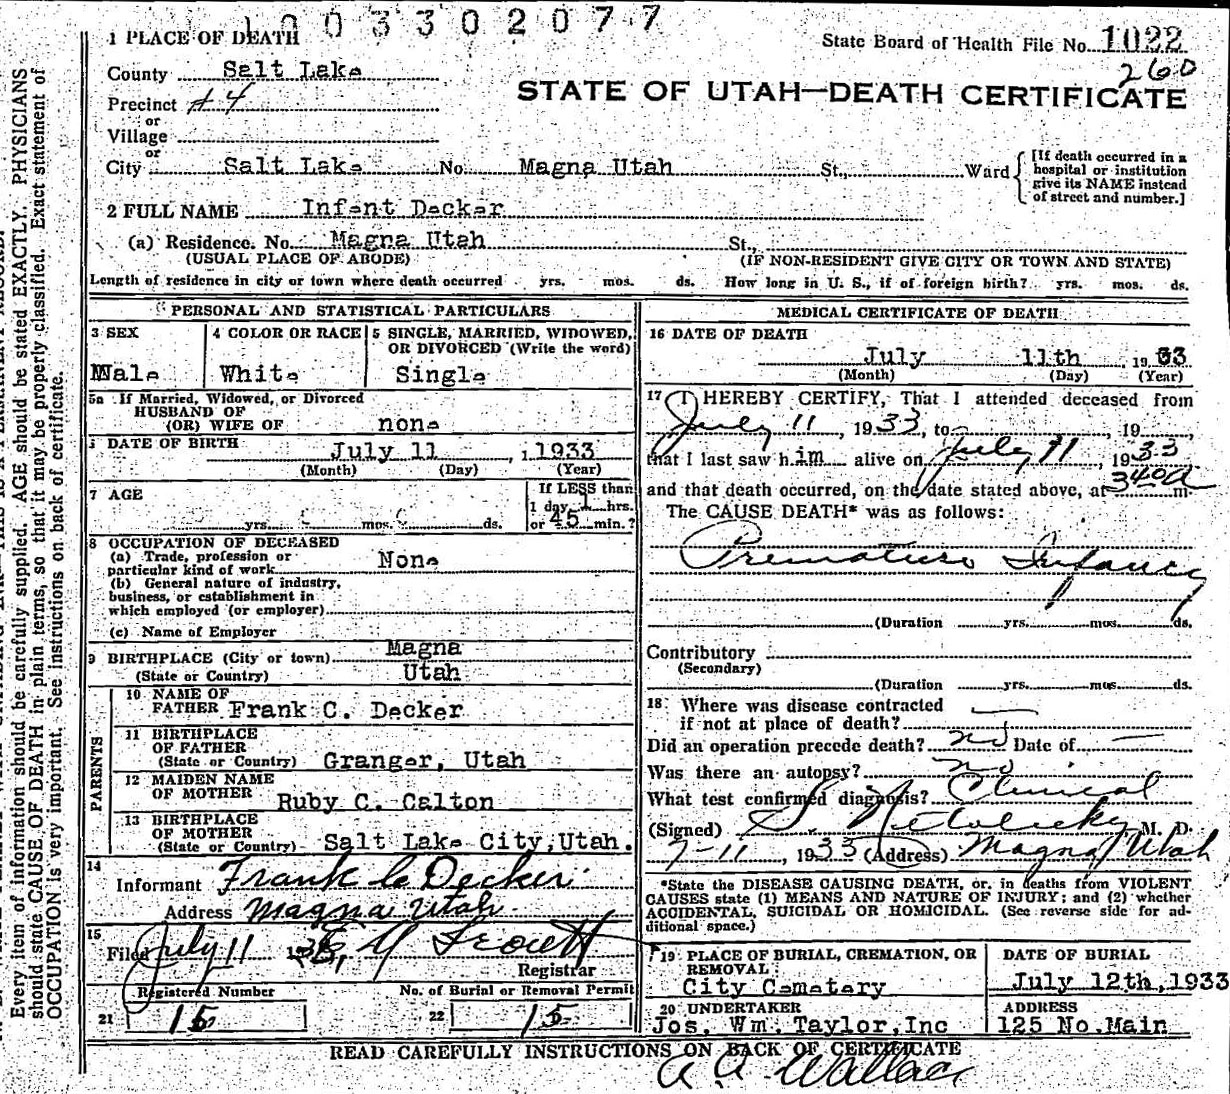 1003302077
1 PLACE OF DEATH
State Board of Health File No. 1022
260
County Salt Lake
STATE OF UTAH—DEATH CERTIFICATE
Precinct #4
or
Village
or
City Salt Lake No. Magna Utah St., Ward
[If death occurred in a
hospital or institution
give its NAME instead
of street and number.]
2 FULL NAME Infant Decker
(a) Residence. No. Magna Utah St.,
(USUAL PLACE OF ABODE) (IF NON-RESIDENT GIVE CITY OR TOWN AND STATE)
Length of residence in city or town where death occurred yrs. mos. ds. How long in U. S., if of foreign birth? yrs. mos. ds.
PERSONAL AND STATISTICAL PARTICULARS
3 SEX
Male
4 COLOR OR RACE
White
5 SINGLE, MARRIED, WIDOWED,
OR DIVORCED (Write the word)
Single
5a If Married, Widowed, or Divorced
HUSBAND OF
(OR) WIFE OF none
DATE OF BIRTH July 11, 1933
(Month) (Day) (Year)
7 AGE
yrs. mos. ds.
If LESS than
1 day hrs.
or 45 min.?
8 OCCUPATION OF DECEASED
(a) Trade, profession or
particular kind of work None
(b) General nature of industry,
business, or establishment in
which employed (or employer)
(c) Name of Employer
9 BIRTHPLACE (City or town) Magna
(State or Country) Utah
PARENTS
10 NAME OF
FATHER Frank C. Decker
11 BIRTHPLACE
OF FATHER
(State or Country) Granger, Utah
12 MAIDEN NAME
OF MOTHER Ruby C. Calton
13 BIRTHPLACE
OF MOTHER
(State or Country) Salt Lake City, Utah.
14
Informant Frank C Decker
Address Magna Utah
15
Filed July 11 1933,
Registrar
Registered Number
21 15
No. of Burial or Removal Permit
22 15
MEDICAL CERTIFICATE OF DEATH
16 DATE OF DEATH
July 11th 1933
(Month) (Day) (Year)
17 I HEREBY CERTIFY, That I attended deceased from
July 11, 1933, to July 11, 19
that I last saw him alive on July 11, 1933
and that death occurred, on the date stated above, at 340a m.
The CAUSE DEATH* was as follows:
Premature Infancy
(Duration yrs. mos. ds.
Contributory
(Secondary)
(Duration yrs. mos. ds.
18 Where was disease contracted
if not at place of death?
Did an operation precede death? no Date of —
Was there an autopsy? no
What test confirmed diagnosis? Clinical
(Signed) M. D.
7-11, 1933 (Address) Magna Utah
*State the DISEASE CAUSING DEATH, or, in deaths from VIOLENT
CAUSES state (1) MEANS AND NATURE OF INJURY; and (2) whether
ACCIDENTAL, SUICIDAL OR HOMICIDAL. (See reverse side for ad-
ditional space.)
19 PLACE OF BURIAL, CREMATION, OR
REMOVAL
City Cemetary
DATE OF BURIAL
July 12th, 1933
20 UNDERTAKER
Jos. Wm. Taylor, Inc
ADDRESS
125 No. Main
READ CAREFULLY INSTRUCTIONS ON BACK OF CERTIFICATE
A A Wallace
Every item of information should be carefully supplied. AGE should be stated EXACTLY. PHYSICIANS
should state CAUSE OF DEATH in plain terms, so that it may be properly classified. Exact statement of
OCCUPATION is very important. See instructions on back of certificate.